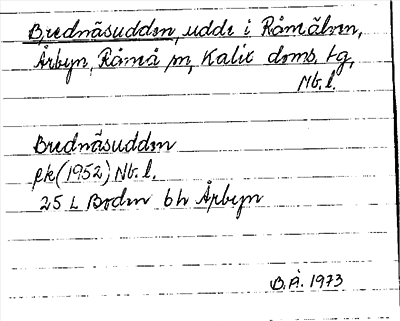 Brednäsudden, udde i Råmälven,
Årbyn, Råneå sn, Kalix doms. tg,
Nb. l.
Brednäsudden
ek (1952) Nb. l.
25 L Boden bh Årbyn
B.Å. 1973